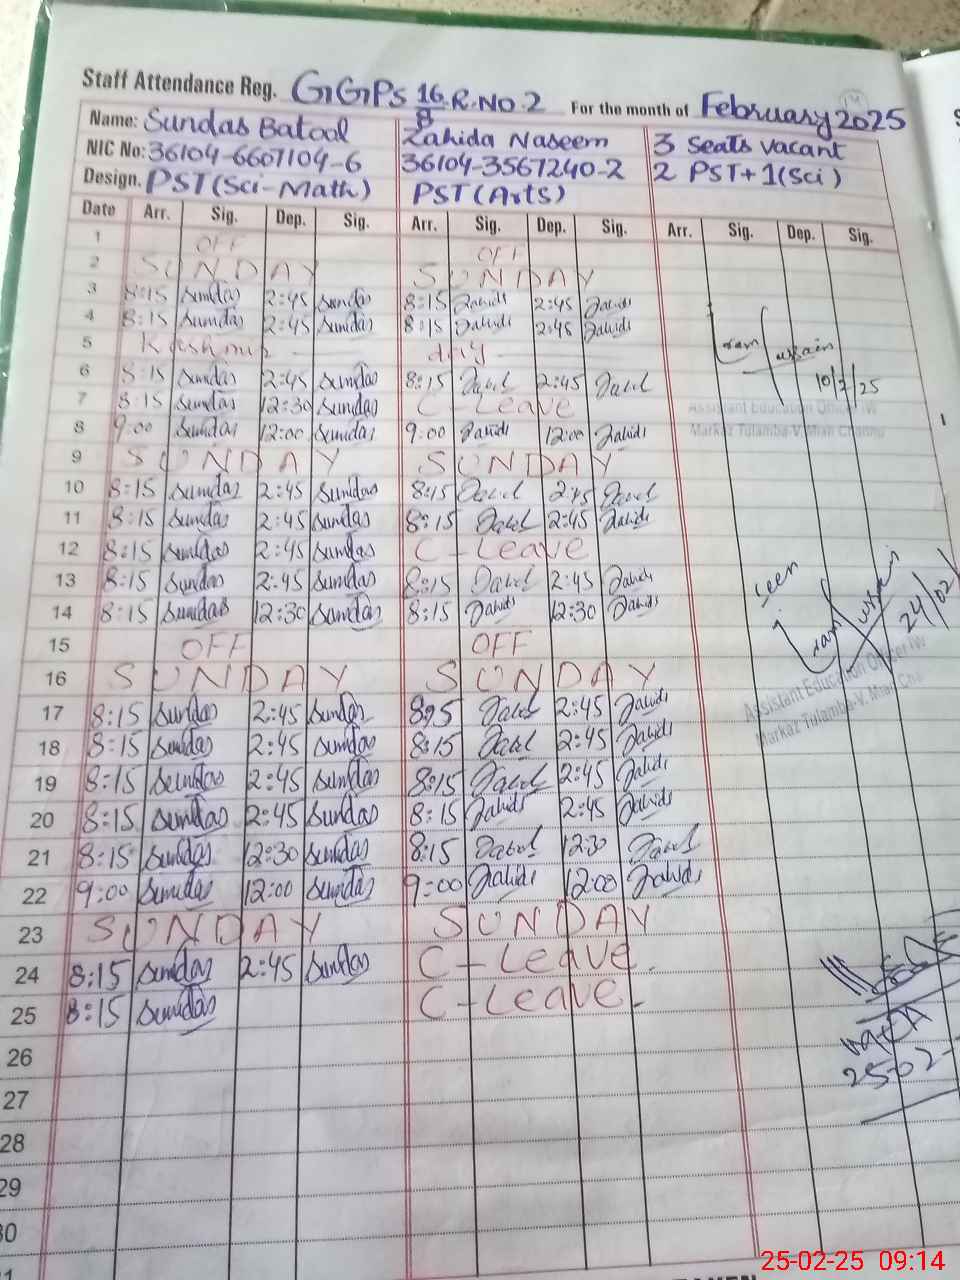 Staff Attendance Reg. GGPS 16/8.R.NO.2 For the month of February 2025
Name: Sundas Batool Zahida Naseem 3 seats vacant
NIC No: 36104-6607104-6 36104-3567240-2 2 PST+1(Sci)
Design. PST(Sci-Math) PST(Arts)
Date Arr. Sig. Dep. Sig. Arr. Sig. Dep. Sig. Arr. Sig. Dep. Sig.
1 OFF OFF
2 SUNDAY SUNDAY
3 8:15 Sundas 2:45 Sundas 8:15 Zahida 2:45 Zahida
4 8:15 Sundas 2:45 Sundas 8:15 Zahida 2:45 Zahida
5 Kashmir day
6 8:15 Sundas 2:45 Sundas 8:15 Zahid 2:45 Zahid
10/2/25
7 8:15 Sundas 12:30 Sundas C-Leave
Assistant Education Officer IW
8 9:00 Sundas 12:00 Sundas 9:00 Zahida 12:00 Zahida
Markaz Tulamba-V, Mian Channu
9 SUNDAY SUNDAY
10 8:15 Sundas 2:45 Sundas 8:15 Zahid 2:45 Zahid
11 8:15 Sundas 2:45 Sundas 8:15 Zahid 2:45 Zahida
12 8:15 Sundas 2:45 Sundas C-Leave
13 8:15 Sundas 2:45 Sundas 8:15 Zahid 2:45 Zahida
seen
14 8:15 Sundas 12:30 Sundas 8:15 Zahida 12:30 Zahida
24/02/
15 OFF OFF
16 SUNDAY SUNDAY
Assistant Education Officer IW
17 8:15 Sundas 2:45 Sundas 8:15 Zahid 2:45 Zahida
Markaz Tulamba-V, Mian Ch
18 8:15 Sundas 2:45 Sundas 8:15 Zahid 2:45 Zahida
19 8:15 Sundas 2:45 Sundas 8:15 Zahid 2:45 Zahida
20 8:15 Sundas 2:45 Sundas 8:15 Zahida 2:45 Zahida
21 8:15 Sundas 12:30 Sundas 8:15 Zahid 12:30 Zahid
22 9:00 Sundas 12:00 Sundas 9:00 Zahida 12:00 Zahida
23 SUNDAY SUNDAY
24 8:15 Sundas 2:45 Sundas C-Leave.
25 8:15 Sundas C-Leave.
25-02-
26
27
28
29
30
31
25-02-25 09:14